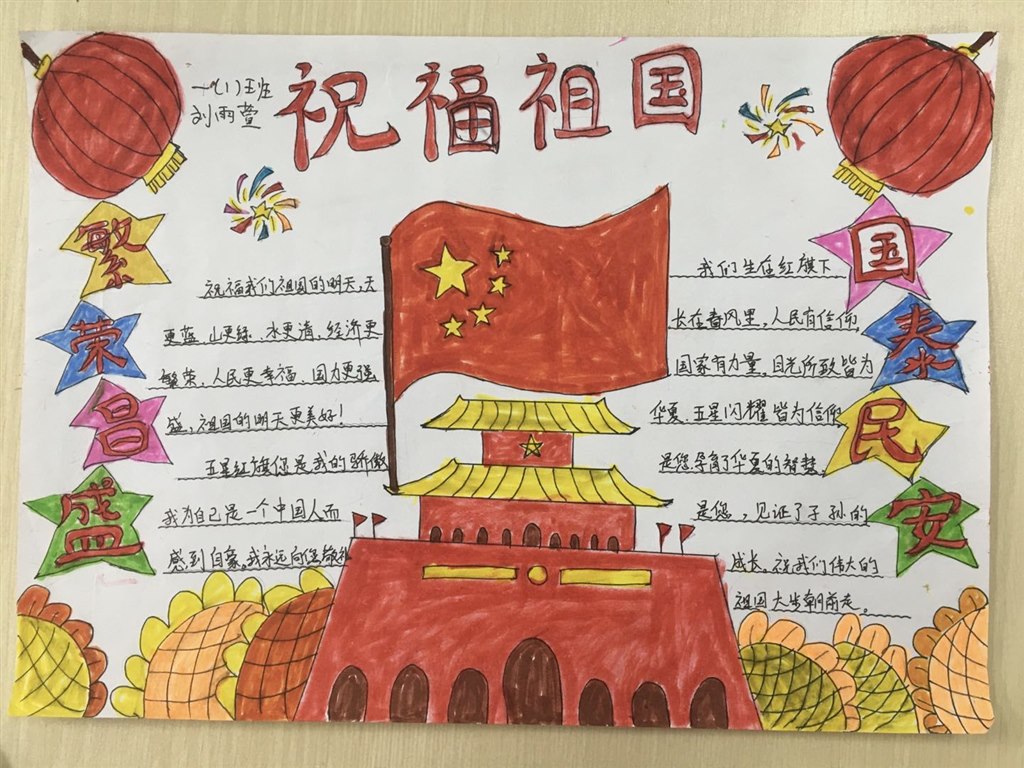 祝福祖国
一(1)班
刘雨萱
繁荣昌盛
祝福我们祖国的明天,天
更蓝、山更绿、水更清、经济更
繁荣、人民更幸福、国力更强
盛,祖国的明天更美好!
五星红旗你是我的骄傲
我为自己是一个中国人而
感到自豪,我永远向您敬礼
国泰民安
我们生在红旗下
长在春风里,人民有信仰,
国家有力量,目光所致皆为
华夏,五星闪耀皆为信仰
是您孕育了华夏的智慧,
是您,见证了子孙的
成长,祝我们伟大的
祖国大步朝前走。